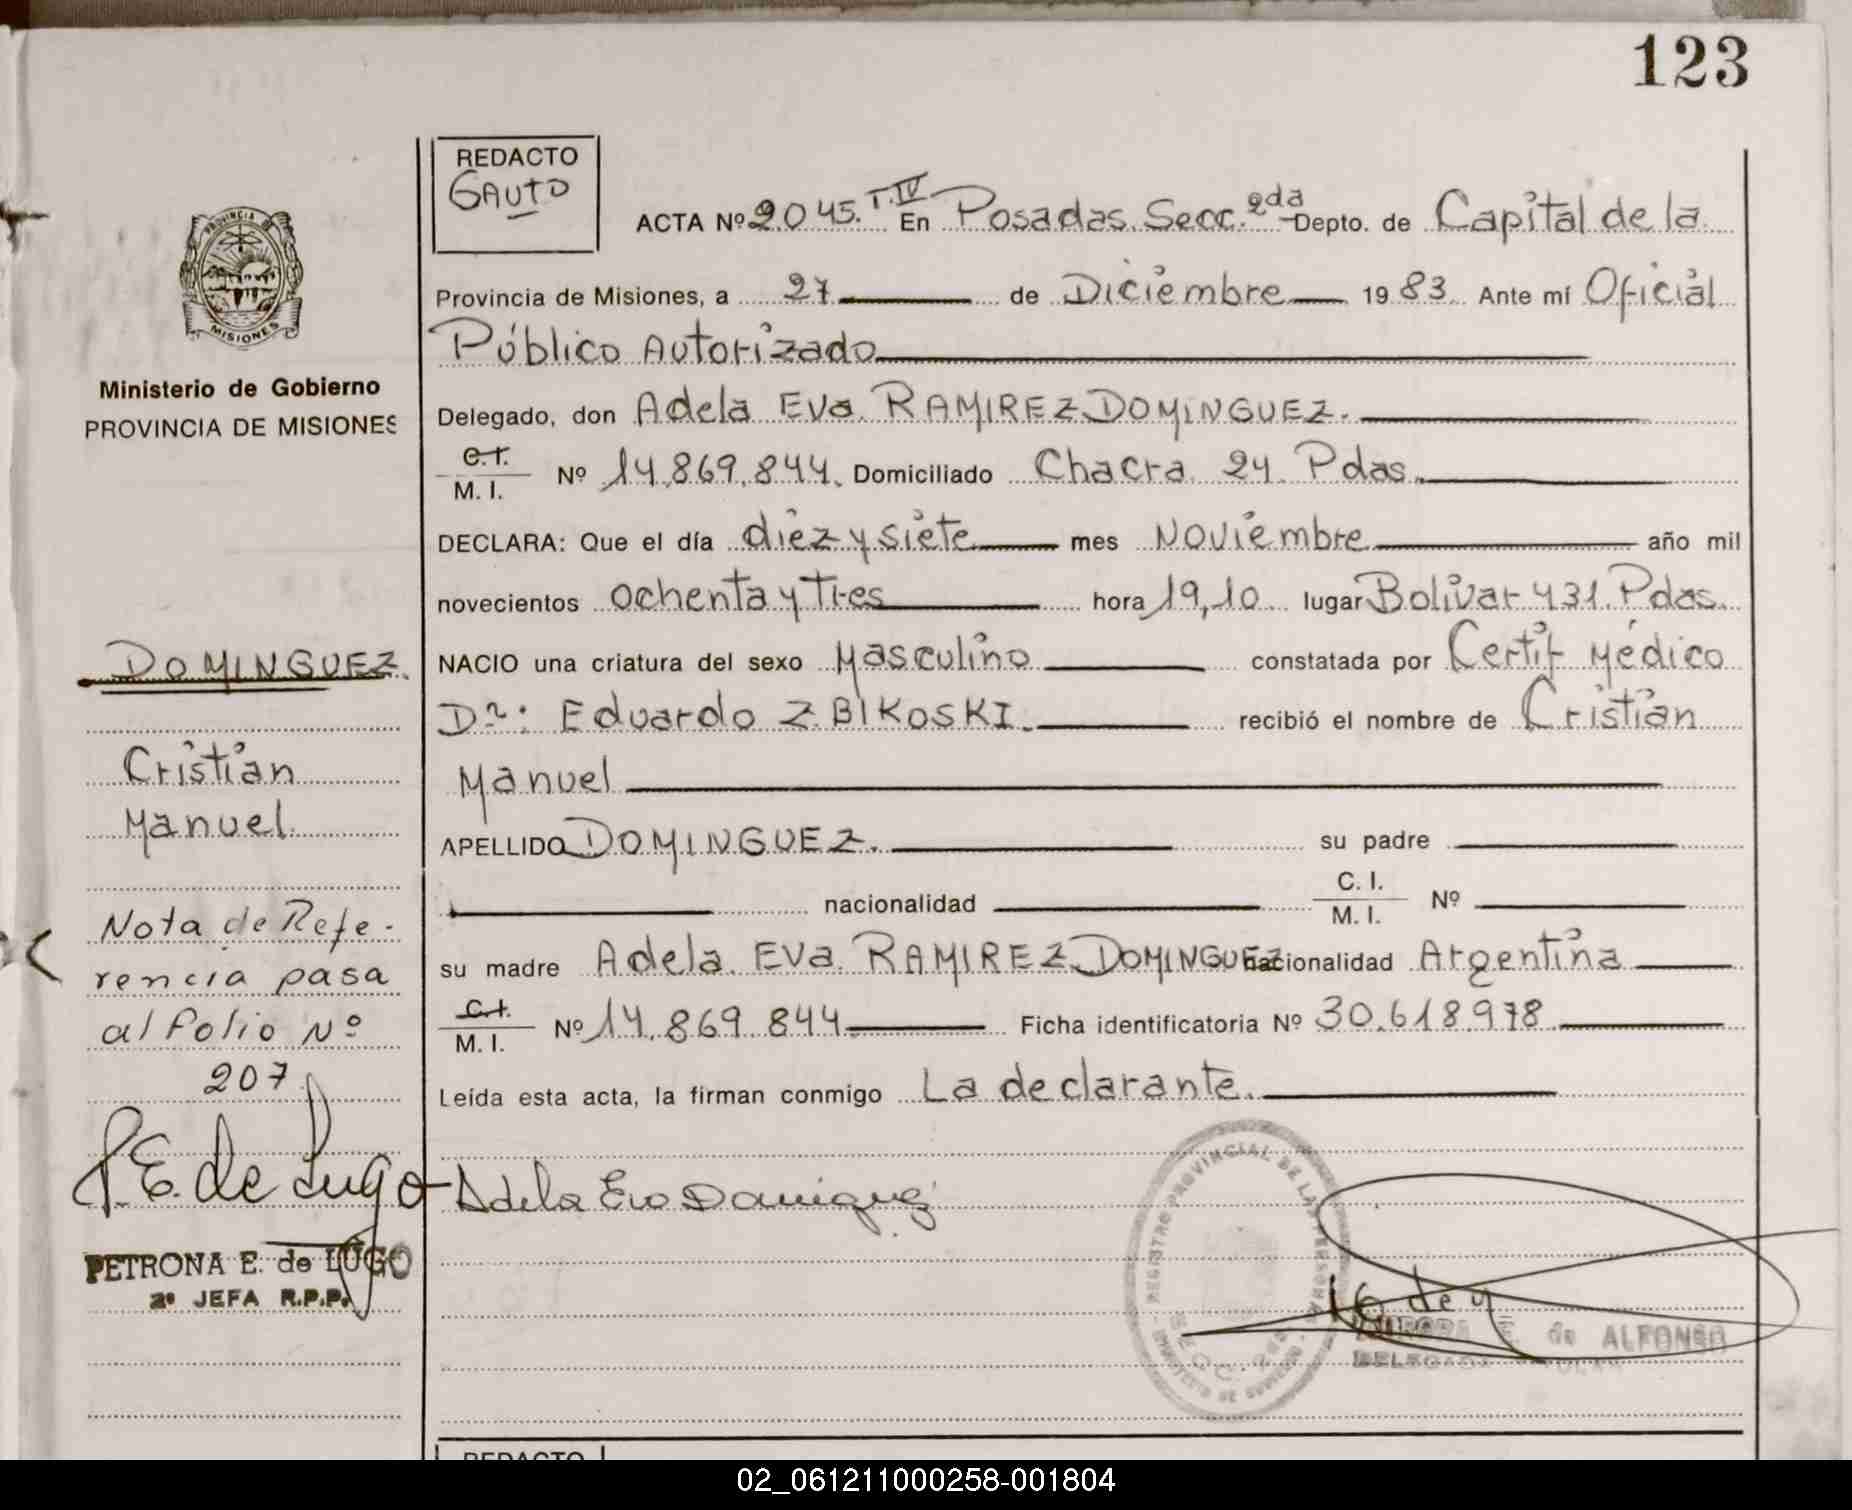 123
REDACTO
GAUTO
ACTA Nº 2045. T. IV En Posadas. Secc. 2da Depto. de Capital de la
Provincia de Misiones, a 27 de Diciembre 1983. Ante mí Oficial
Público Autorizado
Delegado, don Adela Eva RAMIREZ DOMINGUEZ.
C.I.
M. I. Nº 14.869.844. Domiciliado Chacra 24. Pdas.
DECLARA: Que el día diez y siete mes Noviembre año mil
novecientos ochenta y tres hora 19,10 lugar Bolívar 431. Pdas.
NACIO una criatura del sexo Masculino constatada por Certif Médico
Dr: Eduardo ZBIKOSKI. recibió el nombre de Cristian
Manuel
APELLIDO DOMINGUEZ. su padre
nacionalidad C. I.
M. I. Nº
su madre Adela Eva RAMIREZ DOMINGUEZ nacionalidad Argentina
C.I.
M. I. Nº 14.869.844 Ficha identificatoria Nº 30.618.978
Leída esta acta, la firman conmigo La declarante.
Adela Eva Dominguez
REGISTRO PROVINCIAL DE LAS PERSONAS
de ALFONSO
REDACTO
PROVINCIA DE
MISIONES
Ministerio de Gobierno
PROVINCIA DE MISIONES
DOMINGUEZ.
Cristian
Manuel.
Nota de Refe-
rencia pasa
al folio Nº
207
P. E. de Lugo
PETRONA E. de LUGO
2º JEFA R.P.P.
02_061211000258-001804